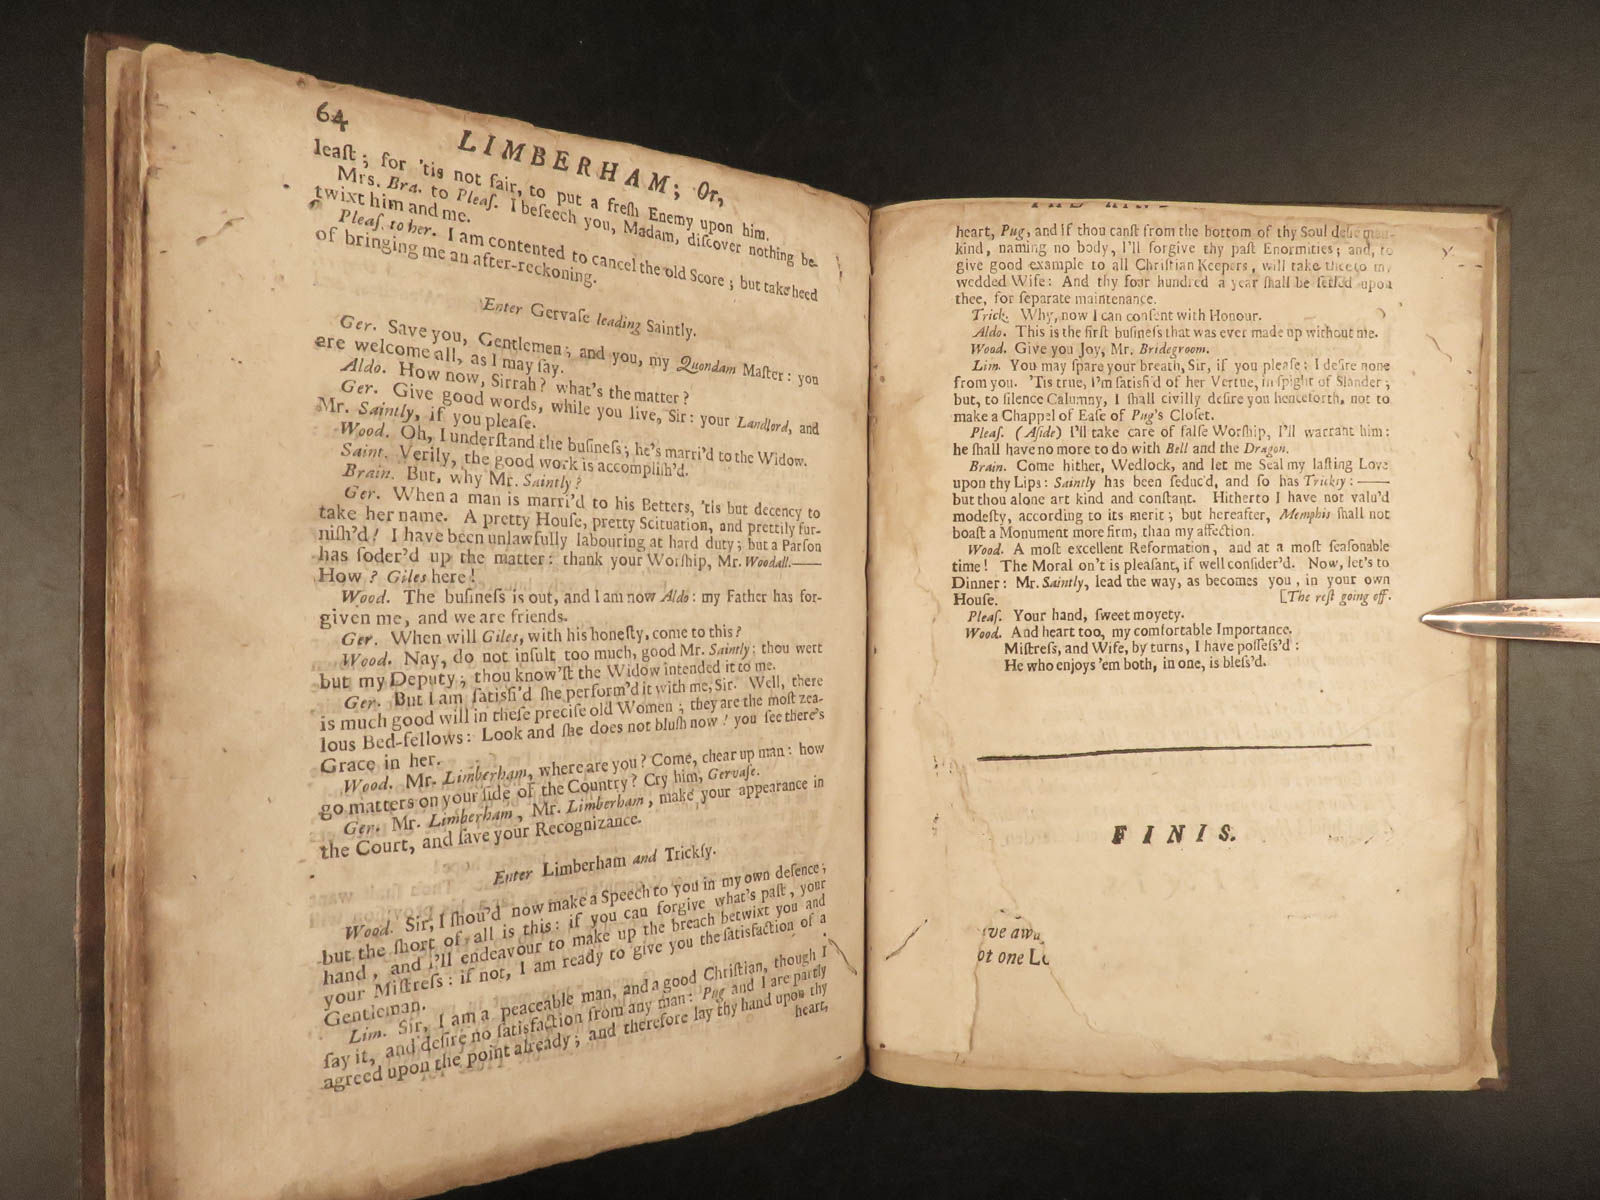 64
LIMBERHAM; Or,
leaſt; for 'tis not fair, to put a freſh Enemy upon him.
Mrs. Bra. to Pleaſ. I beſeech you, Madam, diſcover nothing be-
twixt him and me.
Pleaſ. to her. I am contented to cancel the old Score; but take heed
of bringing me an after-reckoning.
Enter Gervaſe leading Saintly.
Ger. Save you, Gentlemen; and you, my Quondam Maſter: you
are welcome all, as I may ſay.
Aldo. How now, Sirrah? what's the matter?
Ger. Give good words, while you live, Sir: your Landlord, and
Mr. Saintly, if you pleaſe.
Wood. Oh, I underſtand the buſineſs; he's marri'd to the Widow.
Saint. Verily, the good work is accompliſh'd.
Brain. But, why Mr. Saintly?
Ger. When a man is marri'd to his Betters, 'tis but decency to
take her name. A pretty Houſe, pretty Scituation, and prettily fur-
niſh'd! I have been unlawfully labouring at hard duty; but a Parſon
has ſoder'd up the matter: thank your Worſhip, Mr. Woodall.——
How? Giles here!
Wood. The buſineſs is out, and I am now Aldo: my Father has for-
given me, and we are friends.
Ger. When will Giles, with his honeſty, come to this?
Wood. Nay, do not inſult too much, good Mr. Saintly: thou wert
but my Deputy; thou know'ſt the Widow intended it to me.
Ger. But I am ſatisfi'd ſhe perform'd it with me, Sir. Well, there
is much good will in theſe preciſe old Women; they are the moſt zea-
lous Bed-fellows: Look and ſhe does not bluſh now! you ſee there's
Grace in her.
Wood. Mr. Limberham, where are you? Come, chear up man: how
go matters on your ſide of the Country? Cry him, Gervaſe.
Ger. Mr. Limberham, Mr. Limberham, make your appearance in
the Court, and ſave your Recognizance.
Enter Limberham and Trickſy.
Wood. Sir, I ſhou'd now make a Speech to you in my own defence;
but the ſhort of all is this: if you can forgive what's paſt, your
hand, and I'll endeavour to make up the breach betwixt you and
your Miſtreſs: if not, I am ready to give you the ſatisfaction of a
Gentleman.
Lim. Sir, I am a peaceable man, and a good Chriſtian, though I
ſay it, and deſire no ſatisfaction from any man: Pug and I are partly
agreed upon the point already; and therefore lay thy hand upon thy
heart,
heart, Pug, and if thou canſt from the bottom of thy Soul defie man-
kind, naming no body, I'll forgive thy paſt Enormities; and, to
give good example to all Chriſtian Keepers, will take thee to my
wedded Wife: And thy four hundred a year ſhall be ſetled upon
thee, for ſeparate maintenance.
Trick. Why, now I can conſent with Honour.
Aldo. This is the firſt buſineſs that was ever made up without me.
Wood. Give you Joy, Mr. Bridegroom.
Lim. You may ſpare your breath, Sir, if you pleaſe: I deſire none
from you. 'Tis true, I'm ſatisfi'd of her Vertue, in ſpight of Slander;
but, to ſilence Calumny, I ſhall civilly deſire you henceforth, not to
make a Chappel of Eaſe of Pug's Cloſet.
Pleaſ. (Aſide) I'll take care of falſe Worſhip, I'll warrant him:
he ſhall have no more to do with Bell and the Dragon.
Brain. Come hither, Wedlock, and let me Seal my laſting Love
upon thy Lips: Saintly has been ſeduc'd, and ſo has Trickſy:——
but thou alone art kind and conſtant. Hitherto I have not valu'd
modeſty, according to its merit; but hereafter, Memphis ſhall not
boaſt a Monument more firm, than my affection.
Wood. A moſt excellent Reformation, and at a moſt ſeaſonable
time! The Moral on't is pleaſant, if well conſider'd. Now, let's to
Dinner: Mr. Saintly, lead the way, as becomes you, in your own
Houſe. [The reſt going off.
Pleaſ. Your hand, ſweet moyety.
Wood. And heart too, my comfortable Importance.
Miſtreſs, and Wife, by turns, I have poſſeſs'd:
He who enjoys 'em both, in one, is bleſs'd.
FINIS.
ot one